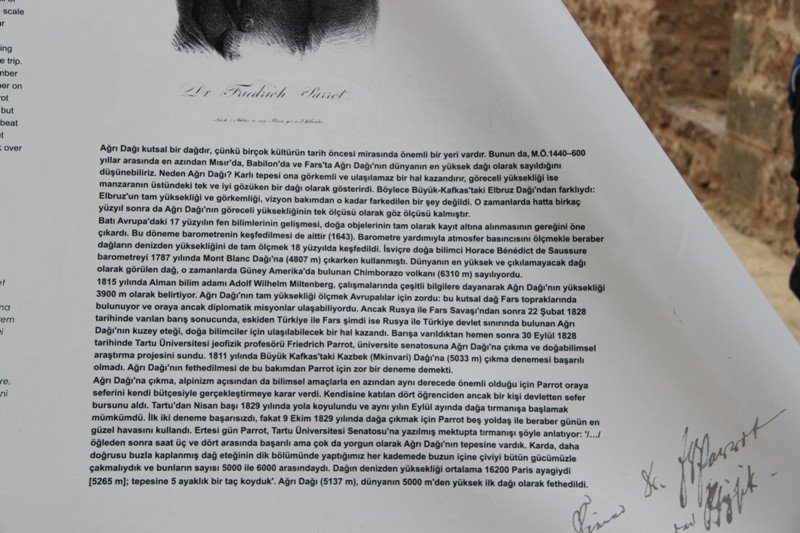 scale
ing
trip.
mber
her on
rot
but
beat
t
k over
Dr. Friedrich Parrot.
Ağrı Dağı kutsal bir dağdır, çünkü birçok kültürün tarih öncesi mirasında önemli bir yeri vardır. Bunun da, M.Ö.1440–600
yıllar arasında en azından Mısır'da, Babilon'da ve Fars'ta Ağrı Dağı'nın dünyanın en yüksek dağı olarak sayıldığını
düşünebiliriz. Neden Ağrı Dağı? Karlı tepesi ona görkemli ve ulaşılamaz bir hal kazandırır, göreceli yüksekliği ise
manzaranın üstündeki tek ve iyi gözüken bir dağı olarak gösterirdi. Böylece Büyük-Kafkas'taki Elbruz Dağı'ndan farklıydı:
Elbruz'un tam yüksekliği ve görkemliği, vizyon bakımdan o kadar farkedilen bir şey değildi. O zamanlarda hatta birkaç
yüzyıl sonra da Ağrı Dağı'nın göreceli yüksekliğinin tek ölçüsü olarak göz ölçüsü kalmıştır.
Batı Avrupa'daki 17 yüzyılın fen bilimlerinin gelişmesi, doğa objelerinin tam olarak kayıt altına alınmasının gereğini öne
çıkardı. Bu döneme barometrenin keşfedilmesi de aittir (1643). Barometre yardımıyla atmosfer basıncısını ölçmekle beraber
dağların denizden yüksekliğini de tam ölçmek 18 yüzyılda keşfedildi. İsviçre doğa bilimci Horace Bénédict de Saussure
barometreyi 1787 yılında Mont Blanc Dağı'na (4807 m) çıkarken kullanmıştı. Dünyanın en yüksek ve çıkılamayacak dağı
olarak görülen dağ, o zamanlarda Güney Amerika'da bulunan Chimborazo volkanı (6310 m) sayılıyordu.
1815 yılında Alman bilim adamı Adolf Wilhelm Miltenberg, çalışmalarında çeşitli bilgilere dayanarak Ağrı Dağı'nın yüksekliği
3900 m olarak belirtiyor. Ağrı Dağı'nın tam yüksekliği ölçmek Avrupalılar için zordu: bu kutsal dağ Fars topraklarında
bulunuyor ve oraya ancak diplomatik misyonlar ulaşabiliyordu. Ancak Rusya ile Fars Savaşı'ndan sonra 22 Şubat 1828
tarihinde varılan barış sonucunda, eskiden Türkiye ile Fars şimdi ise Rusya ile Türkiye devlet sınırında bulunan Ağrı
Dağı'nın kuzey eteği, doğa bilimciler için ulaşılabilecek bir hal kazandı. Barışa varıldıktan hemen sonra 30 Eylül 1828
tarihinde Tartu Üniversitesi jeofizik profesörü Friedrich Parrot, üniversite senatosuna Ağrı Dağı'na çıkma ve doğabilimsel
araştırma projesini sundu. 1811 yılında Büyük Kafkas'taki Kazbek (Mkinvari) Dağı'na (5033 m) çıkma denemesi başarılı
olmadı. Ağrı Dağı'nın fethedilmesi de bu bakımdan Parrot için zor bir deneme demekti.
Ağrı Dağı'na çıkma, alpinizm açısından da bilimsel amaçlarla en azından aynı derecede önemli olduğu için Parrot oraya
seferini kendi bütçesiyle gerçekleştirmeye karar verdi. Kendisine katılan dört öğrenciden ancak bir kişi devletten sefer
bursunu aldı. Tartu'dan Nisan başı 1829 yılında yola koyulundu ve aynı yılın Eylül ayında dağa tırmanışa başlamak
mümkümdü. İlk iki deneme başarısızdı, fakat 9 Ekim 1829 yılında dağa çıkmak için Parrot beş yoldaş ile beraber günün en
güzel havasını kullandı. Ertesi gün Parrot, Tartu Üniversitesi Senatosu'na yazılmış mektupta tırmanışı şöyle anlatıyor: '/.../
öğleden sonra saat üç ve dört arasında başarılı ama çok da yorgun olarak Ağrı Dağı'nın tepesine vardık. Karda, daha
doğrusu buzla kaplanmış dağ eteğinin dik bölümünde yaptığımız her kademede buzun içine çiviyi bütün gücümüzle
çakmalıydık ve bunların sayısı 5000 ile 6000 arasındaydı. Dağın denizden yüksekliği ortalama 16200 Paris ayagiydi
[5265 m]; tepesine 5 ayaklık bir taç koyduk'. Ağrı Dağı (5137 m), dünyanın 5000 m'den yüksek ilk dağı olarak fethedildi.
Dr. Parrot